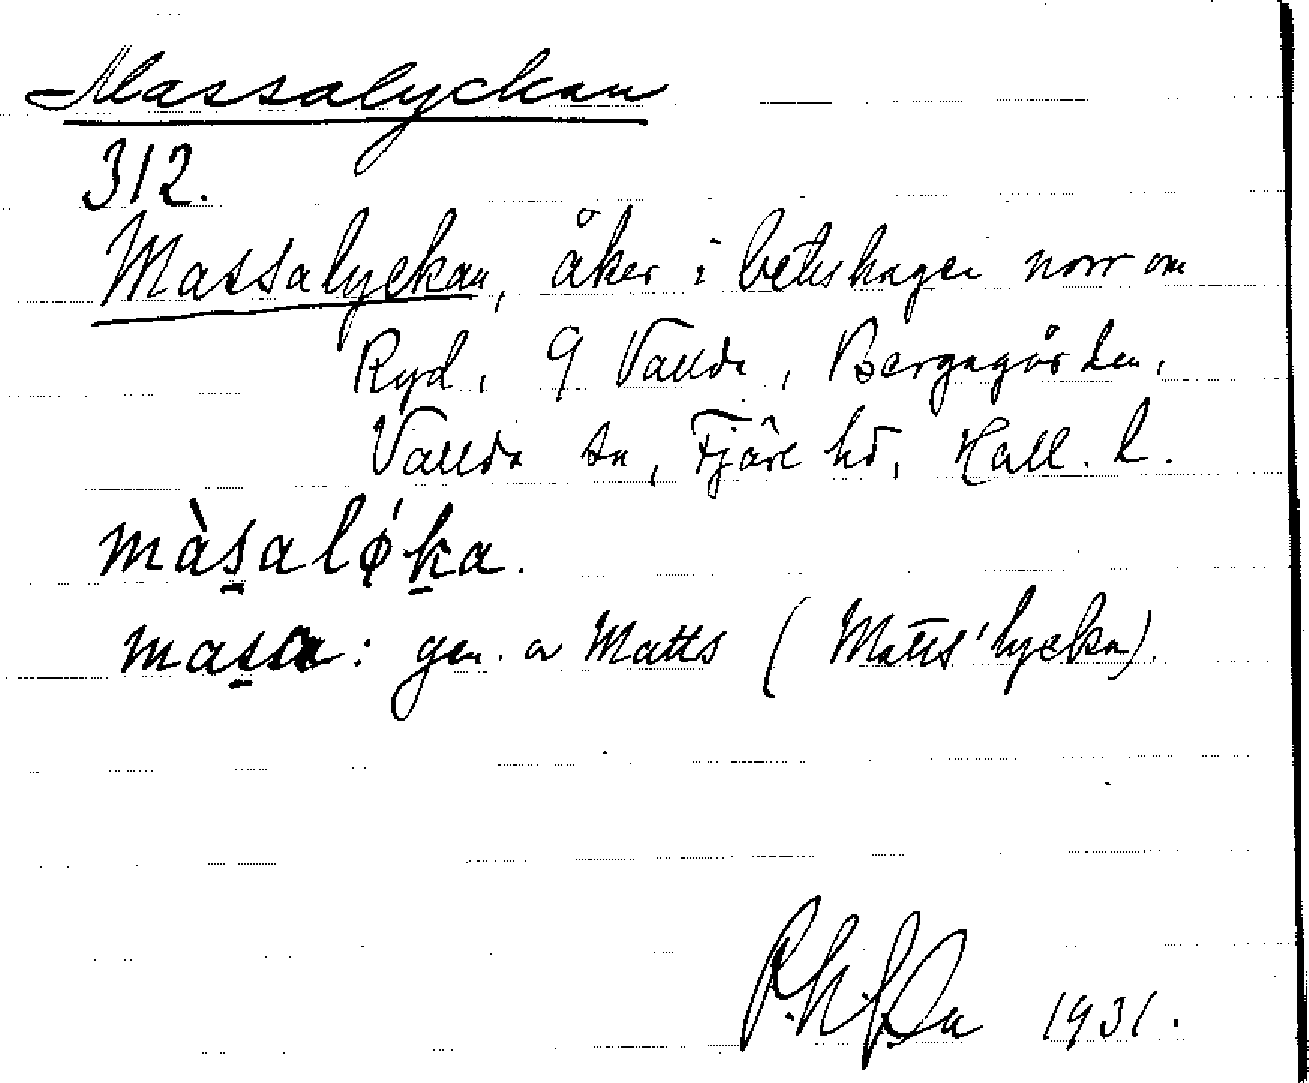 Massalyckan
312.
Massalyckan, åker i beteshagen norr om
Ryd, 9 Vallda, Bergagården,
Vallda sn, Fjäre hd, Hall. l.
màsaló̸ka.
masa: gen. av Matts (Matts' lycka).
1931.